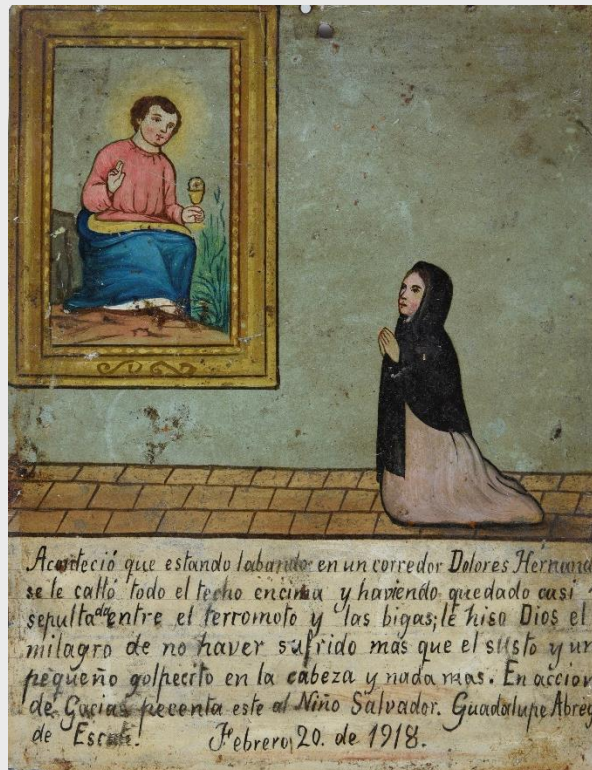 Aconteció que estando labando en un corredor Dolores Hernand
se le calló todo el techo encima y haviendo quedado casi
sepultada entre el terromoto y las bigas; le hiso Dios el
milagro de no haver sufrido mas que el susto y un
pequeño golpecito en la cabeza y nada mas. En accion
de Gacias pecenta este al Niño Salvador. Guadalupe Abrey
de Febrero, 20. de 1918.